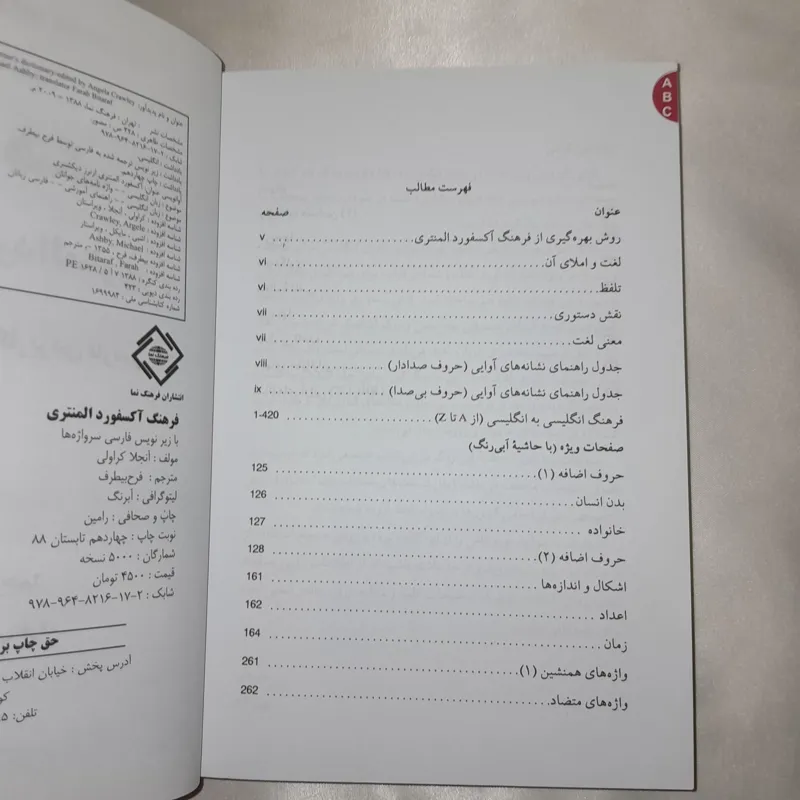 A
B
C
فهرست مطالب
عنوان صفحه
روش بهره‌گیری از فرهنگ آکسفورد المنتری v
لغت و املای آن vi
تلفظ vi
نقش دستوری vii
معنی لغت vii
جدول راهنمای نشانه‌های آوایی (حروف صدادار) viii
جدول راهنمای نشانه‌های آوایی (حروف بی‌صدا) ix
فرهنگ انگلیسی به انگلیسی (از A تا Z) 1-420
صفحات ویژه (با حاشیهٔ آبی‌رنگ)
حروف اضافه (۱) 125
بدن انسان 126
خانواده 127
حروف اضافه (۲) 128
اشکال و اندازه‌ها 161
اعداد 162
زمان 164
واژه‌های همنشین (۱) 261
واژه‌های متضاد 262
dictionary-edited by Angela Crawley
Ashby; translator Farah Bitaraf
مشخصات نشر : تهران : فرهنگ نما، ۱۳۸۸ = ۲۰۰۹ م
مشخصات ظاهری : ۴۲۸ ص : مصور
شابک : ۹۷۸-۹۶۴-۸۲۱۶-۱۷-۲
یادداشت : انگلیسی
یادداشت : زیر نویس ترجمه شده به فارسی توسط فرح بیطرف
یادداشت : چاپ چهاردهم
موضوع : زبان انگلیسی -- واژه نامه‌های جوانان
موضوع : زبان انگلیسی -- راهنمای آموزشی -- فارسی زبانان
شناسه افزوده : کراولی ، آنجلا ، ویراستار
شناسه افزوده : Crawley, Argele
شناسه افزوده : اشبی ، مایکل ، ویراستار
شناسه افزوده : Ashby, Michael
شناسه افزوده : بیطرف، فرح ، ۱۳۵۵ -، مترجم
شناسه افزوده : Bitaraf , Farah
رده بندی کنگره : ۱۳۸۸ ۷ ۵ / PE ۱۶۲۸
رده بندی دیویی : ۴۲۳
شماره کتابشناسی ملی : ۱۶۹۹۹۸۳
انتشاران فرهنگ نما
فرهنگ آکسفورد المنتری
با زیر نویس فارسی سرواژه‌ها
مولف : آنجلا کراولی
مترجم : فرح‌بیطرف
لیتوگرافی : آبرنگ
چاپ و صحافی : رامین
نوبت چاپ : چهاردهم تابستان ۸۸
شمارگان : ۵۰۰۰ نسخه
قیمت : ۴۵۰۰ تومان
شابک : ۲-۱۷-۸۲۱۶-۹۶۴-۹۷۸
حق چاپ
آدرس پخش : خیابان انقلاب
تلفن: